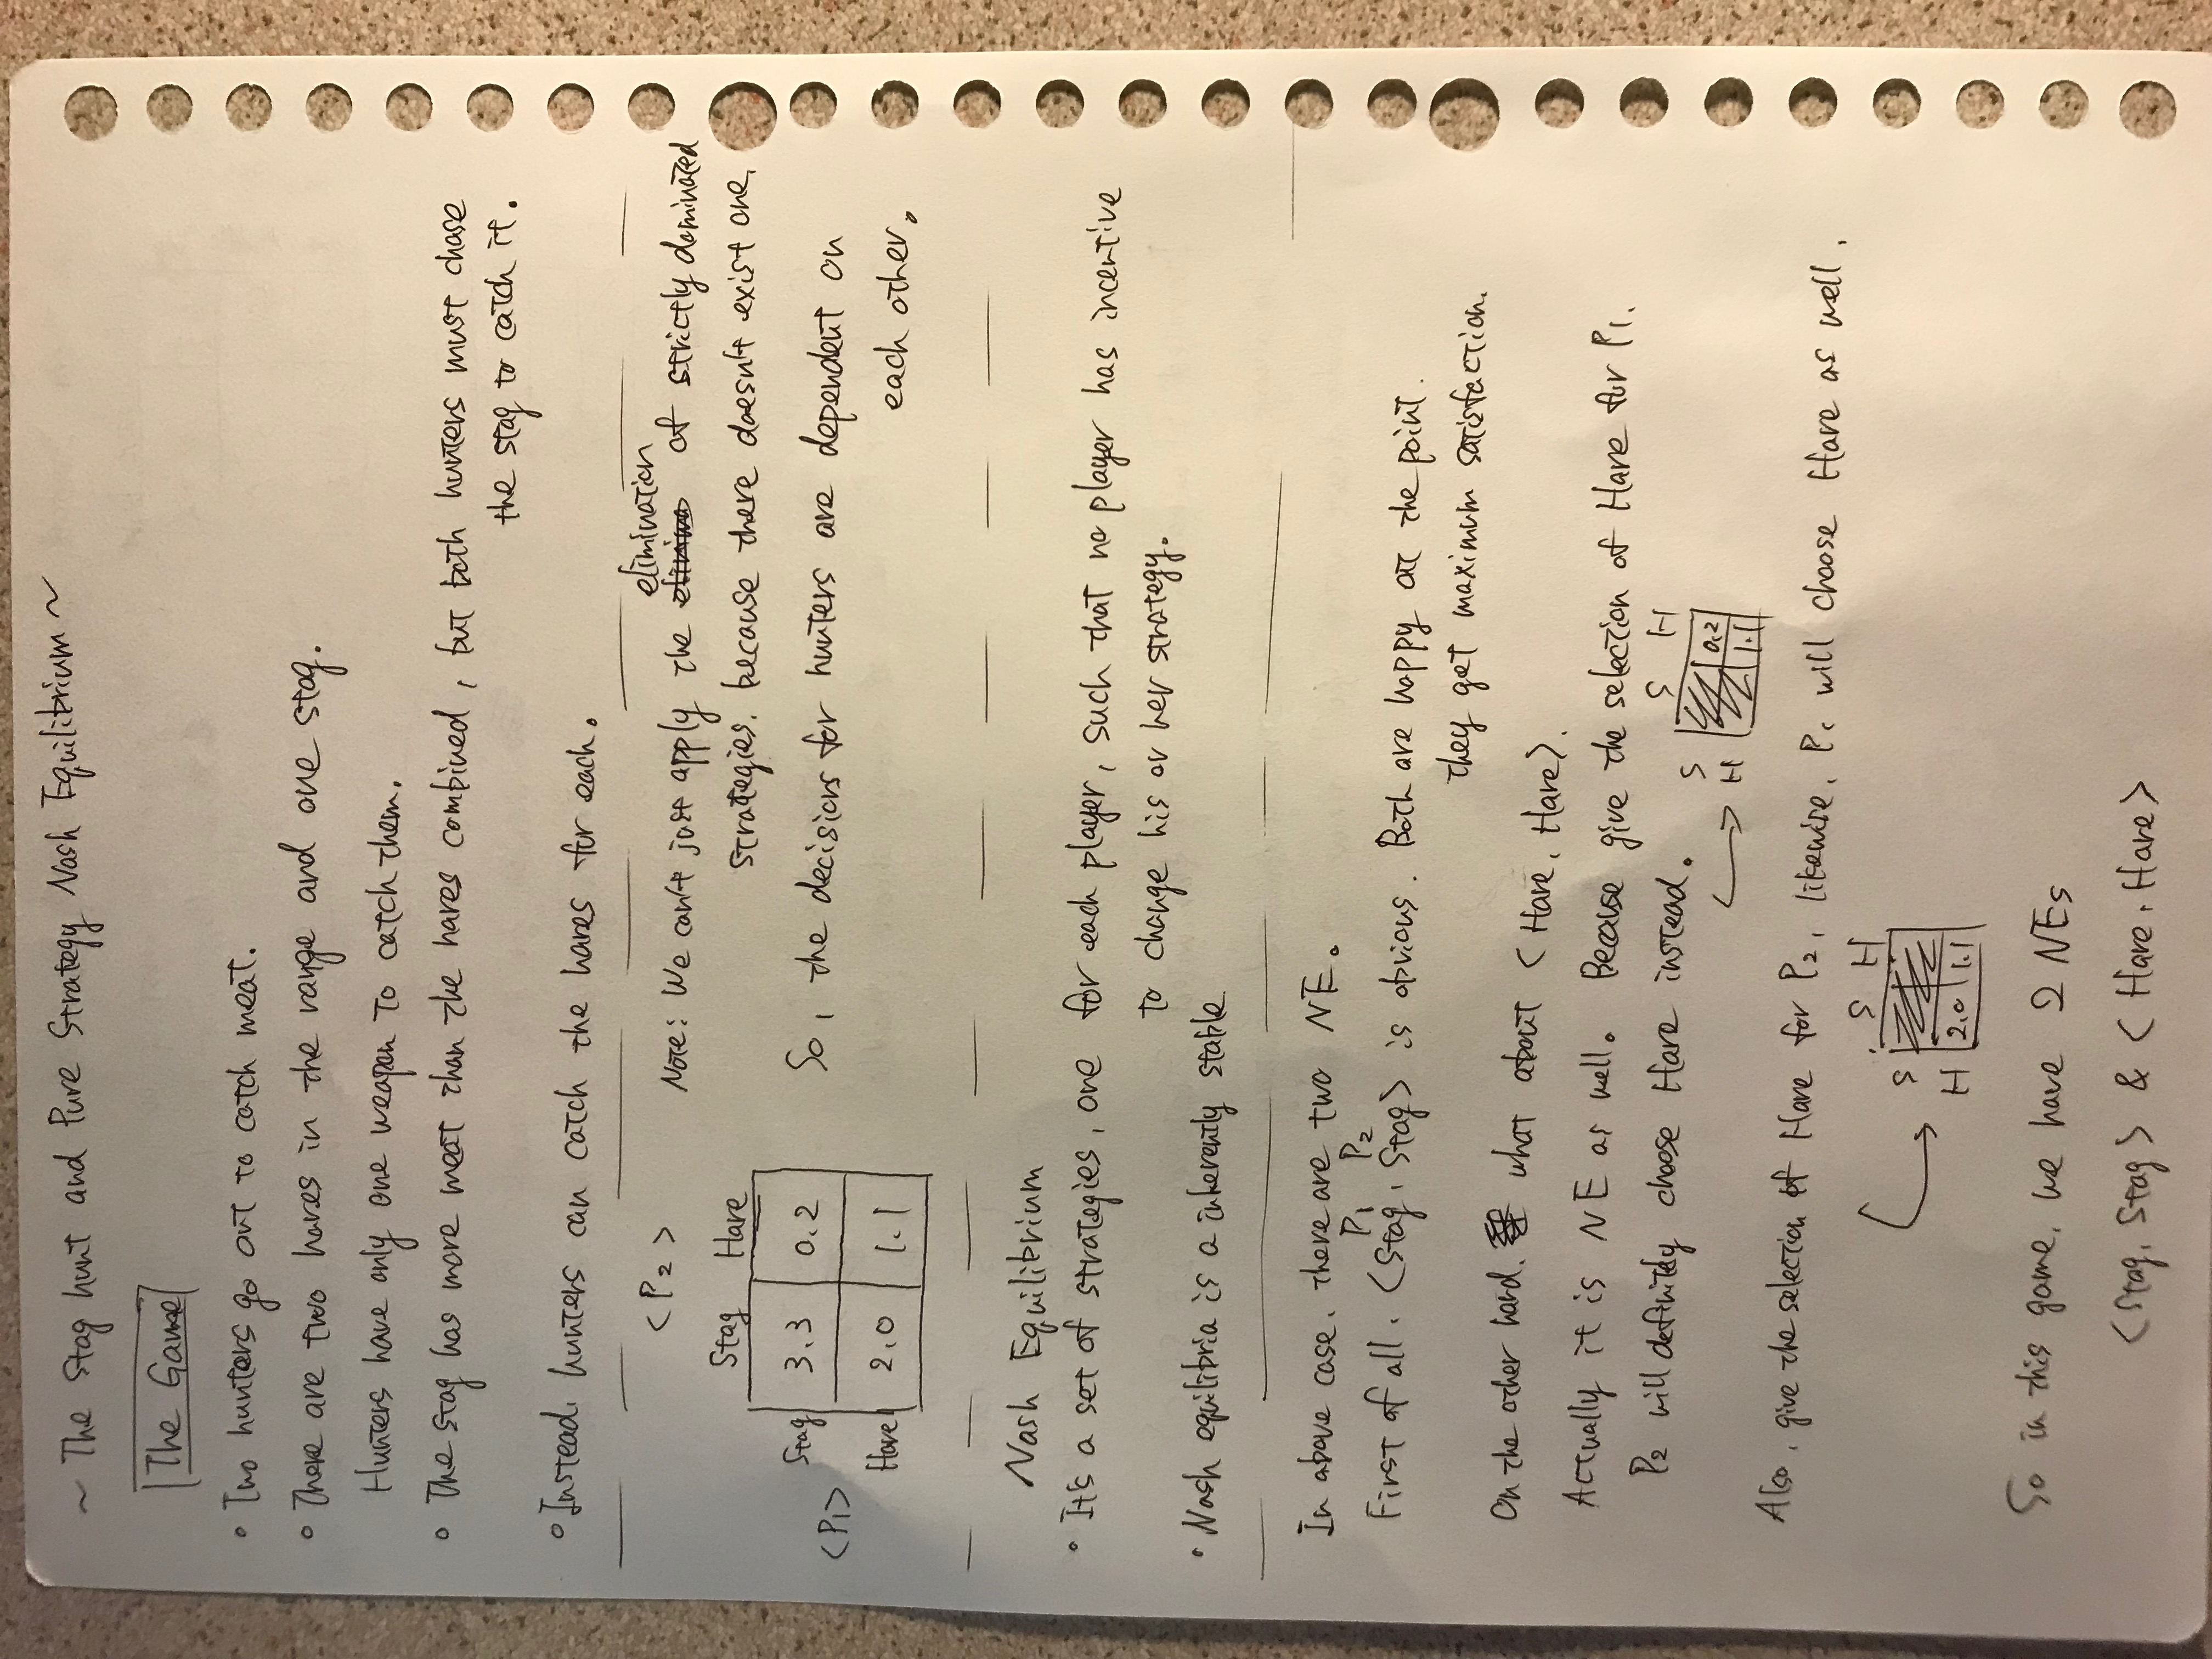 ~ The Stag hunt and Pure Strategy Nash Equilibrium ~
The Game
• Two hunters go out to catch meat.
• There are two hares in the range and one stag.
Hunters have only one weapon to catch them.
• The stag has more meat than the hares combined, but both hunters must chase
the stag to catch it.
• Instead, hunters can catch the hares for each.
<P2>
Stag Hare
<P1> Stag 3.3 0.2
Hare 2.0 1.1
Note: We can't just apply the elimination of strictly dominated
strategies. because there doesn't exist one,
So, the decisions for hunters are dependent on
each other.
Nash Equilibrium
• It's a set of strategies, one for each player, such that no player has incentive
to change his or her strategy.
• Nash equilibria is a inherently stable
In above case, there are two NE.
P1 P2
First of all. <Stag, Stag> is obvious. Both are happy at the point.
they get maximum satisfaction.
On the other hand, what about <Hare, Hare>.
Actually it is NE as well. Because give the selection of Hare for P1.
P2 will definitely choose Hare instead.
S H
S 0.2
H 1.1
Also, give the selection of Hare for P2, likewise, P1 will choose Hare as well.
S H
S
H 2.0 1.1
So in this game, we have 2 NEs
<Stag, Stag> & <Hare, Hare>